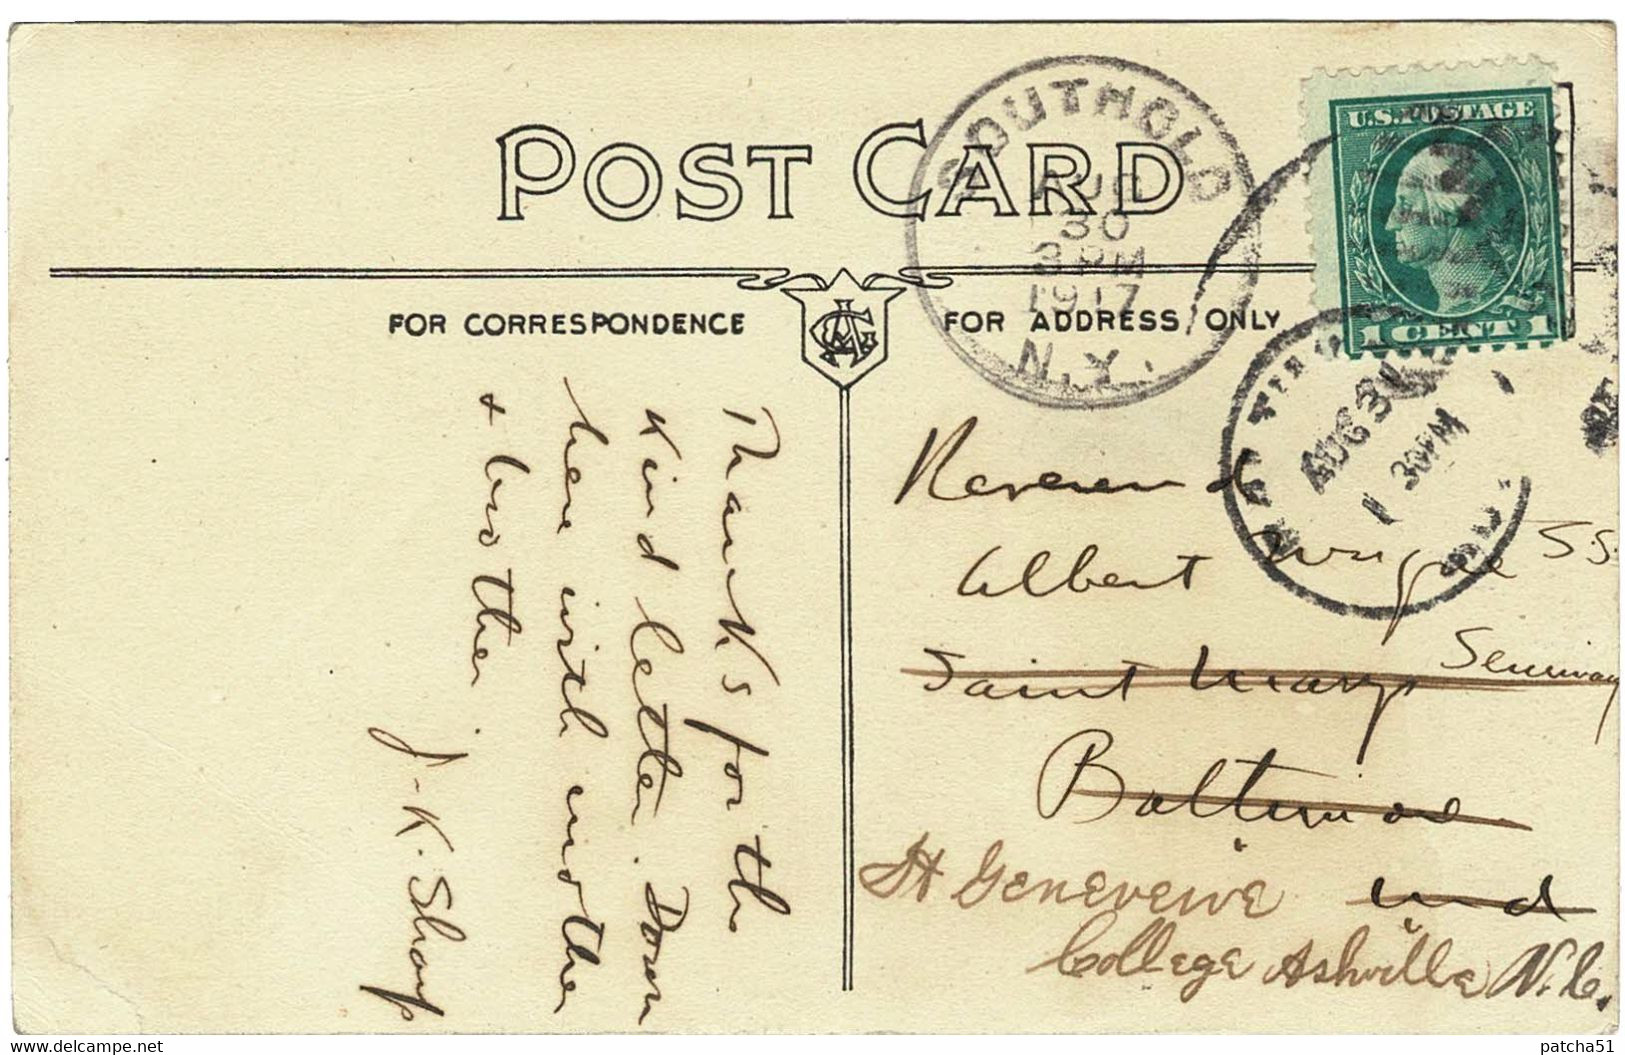 POST CARD
FOR CORRESPONDENCE
FOR ADDRESS ONLY
SOUTHOLD
AUG
30
3 PM
1917
N.Y.
U.S. POSTAGE
1 CENT 1
AUG 30
1 30 PM
Thanks for the
kind letter. Down
here with mother
& brother
J-K. Sharp
Reverend
Albert S.S.
Saint Marys Seminary
Baltimore
Md
St Geneveive
College Ashville N.C.
www.delcampe.net
patcha51